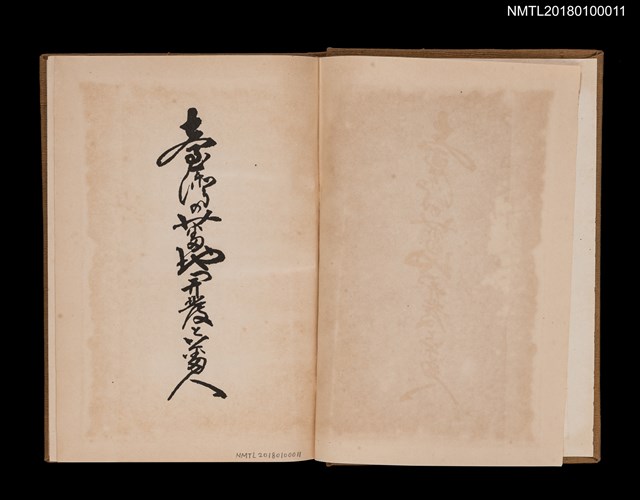 NMTL20180100011
臺灣の蕃地開發と蕃人
NMTL20180100011